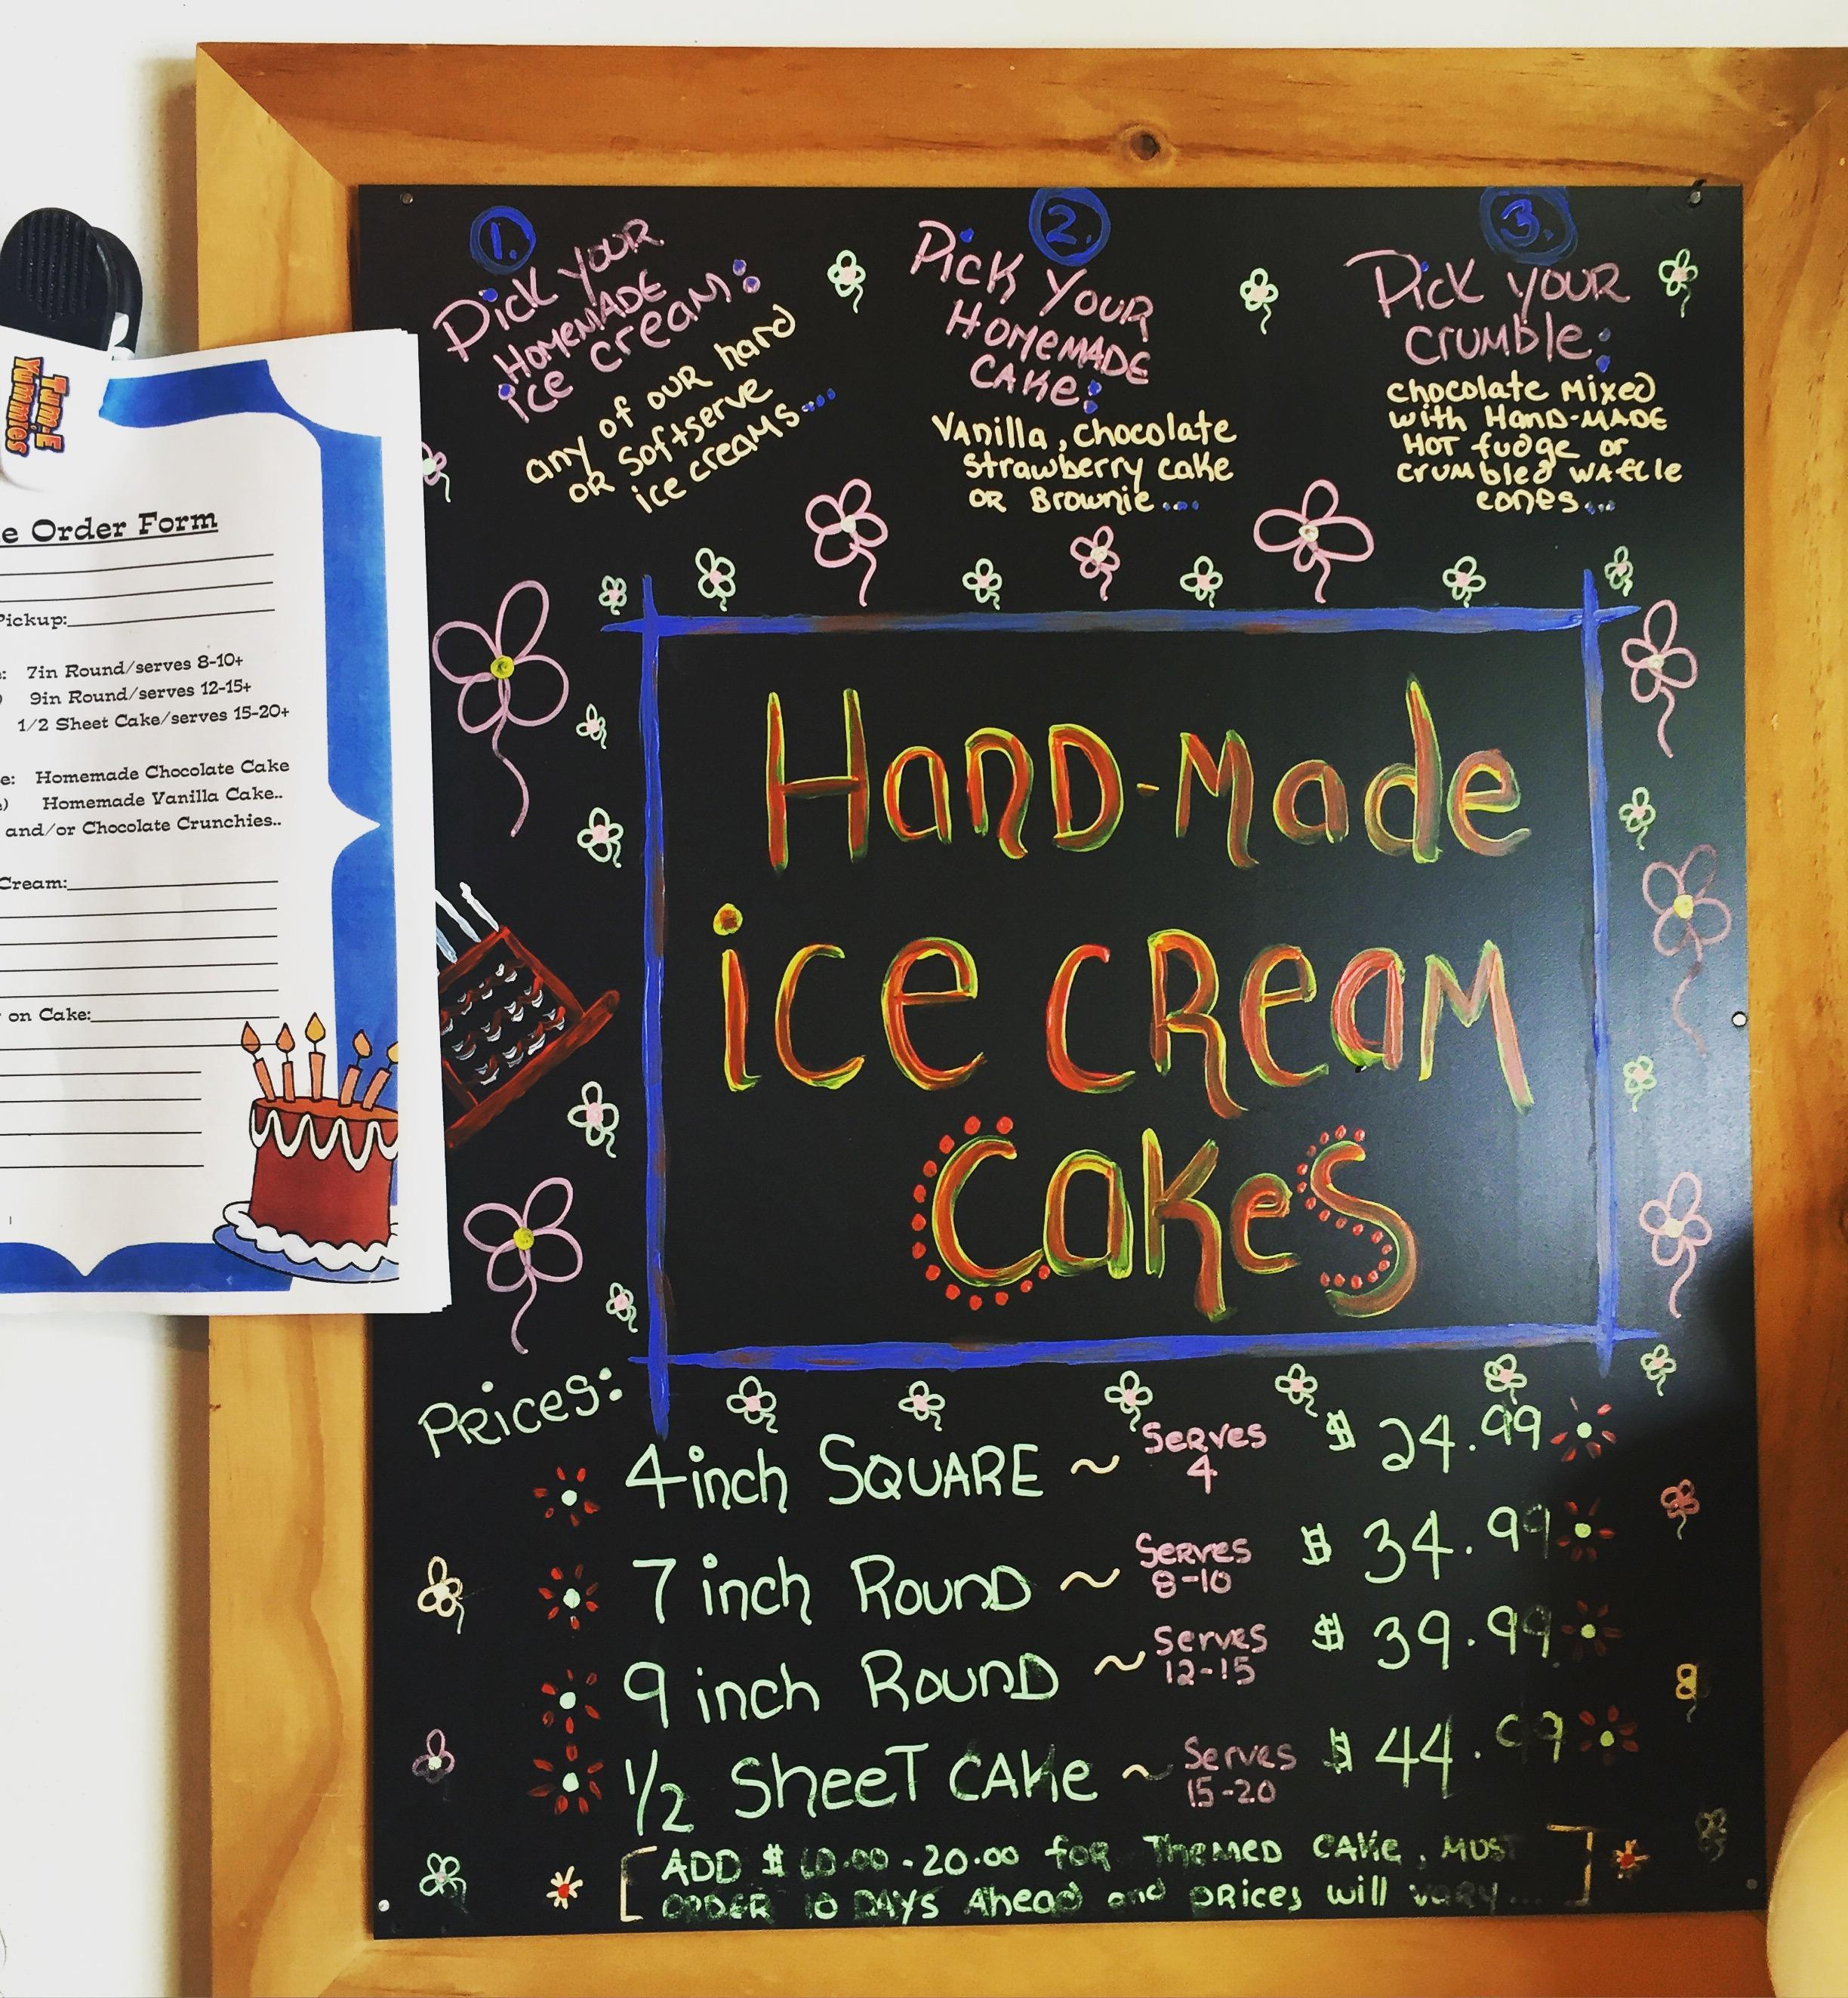 1.
Pick your
HOMEMADE
ice cream:
any of our hard
OR softserve
ice creams....
2.
Pick Your
HOMEMADE
CAKe:
VAnilla, chocolate
strawberry cake
OR Brownie....
3.
Pick your
crumble:
chocolate Mixed
with HanD-MADE
HOT fudge or
crumbled waffle
cones...
Tum-E
Yummies
Order Form
Pickup:
7in Round/serves 8-10+
9in Round/serves 12-15+
1/2 Sheet Cake/serves 15-20+
Homemade Chocolate Cake
Homemade Vanilla Cake..
and/or Chocolate Crunchies..
Cream:
on Cake:
HanD-Made
ice cReaM
CakeS
Prices:
4 inch SQUARE ~ Serves 4 $ 24.99
7 inch RounD ~ Serves 8-10 $ 34.99
9 inch RounD ~ Serves 12-15 $ 39.99
1/2 SheeT CAKe ~ Serves 15-20 $ 44.99
[ADD $ 10.00-20.00 for THeMeD CAKe, MUST
ORDER 10 DAYS Ahead and prices will vary...]